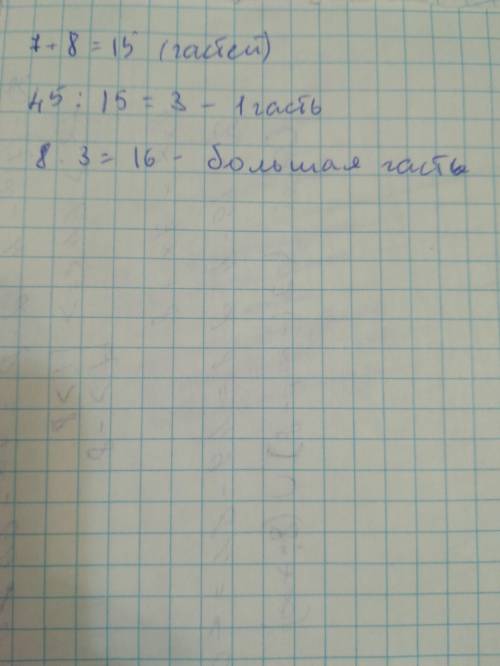 7+8 = 15 (частей)
45 : 15 = 3 - 1 часть
8 3 = 16 - большая часть